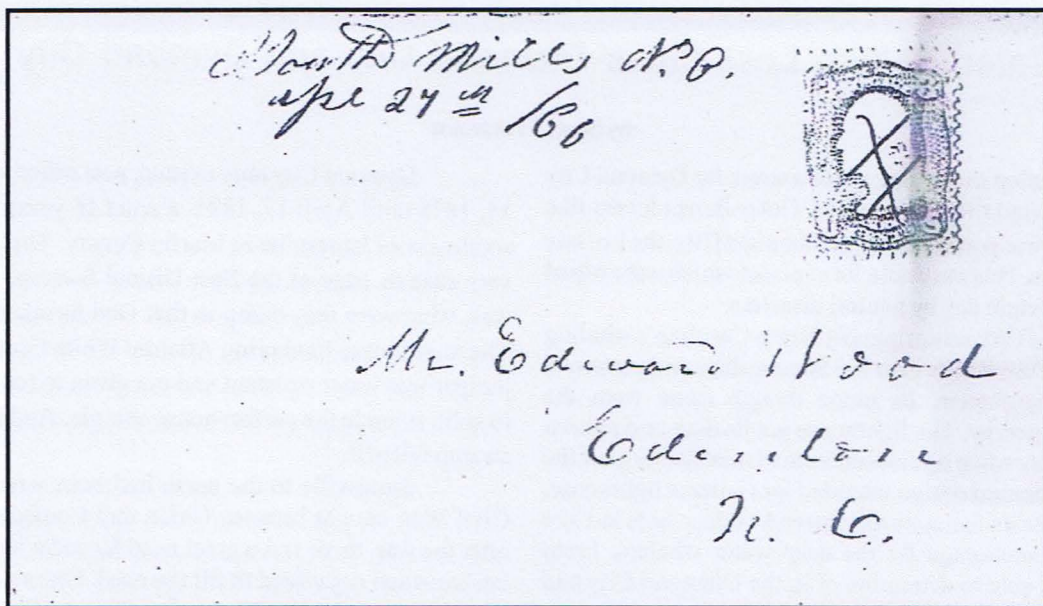 South Mills N.C.
Apl 24th /66
Mr. Edward Wood
Edenton
N. C.